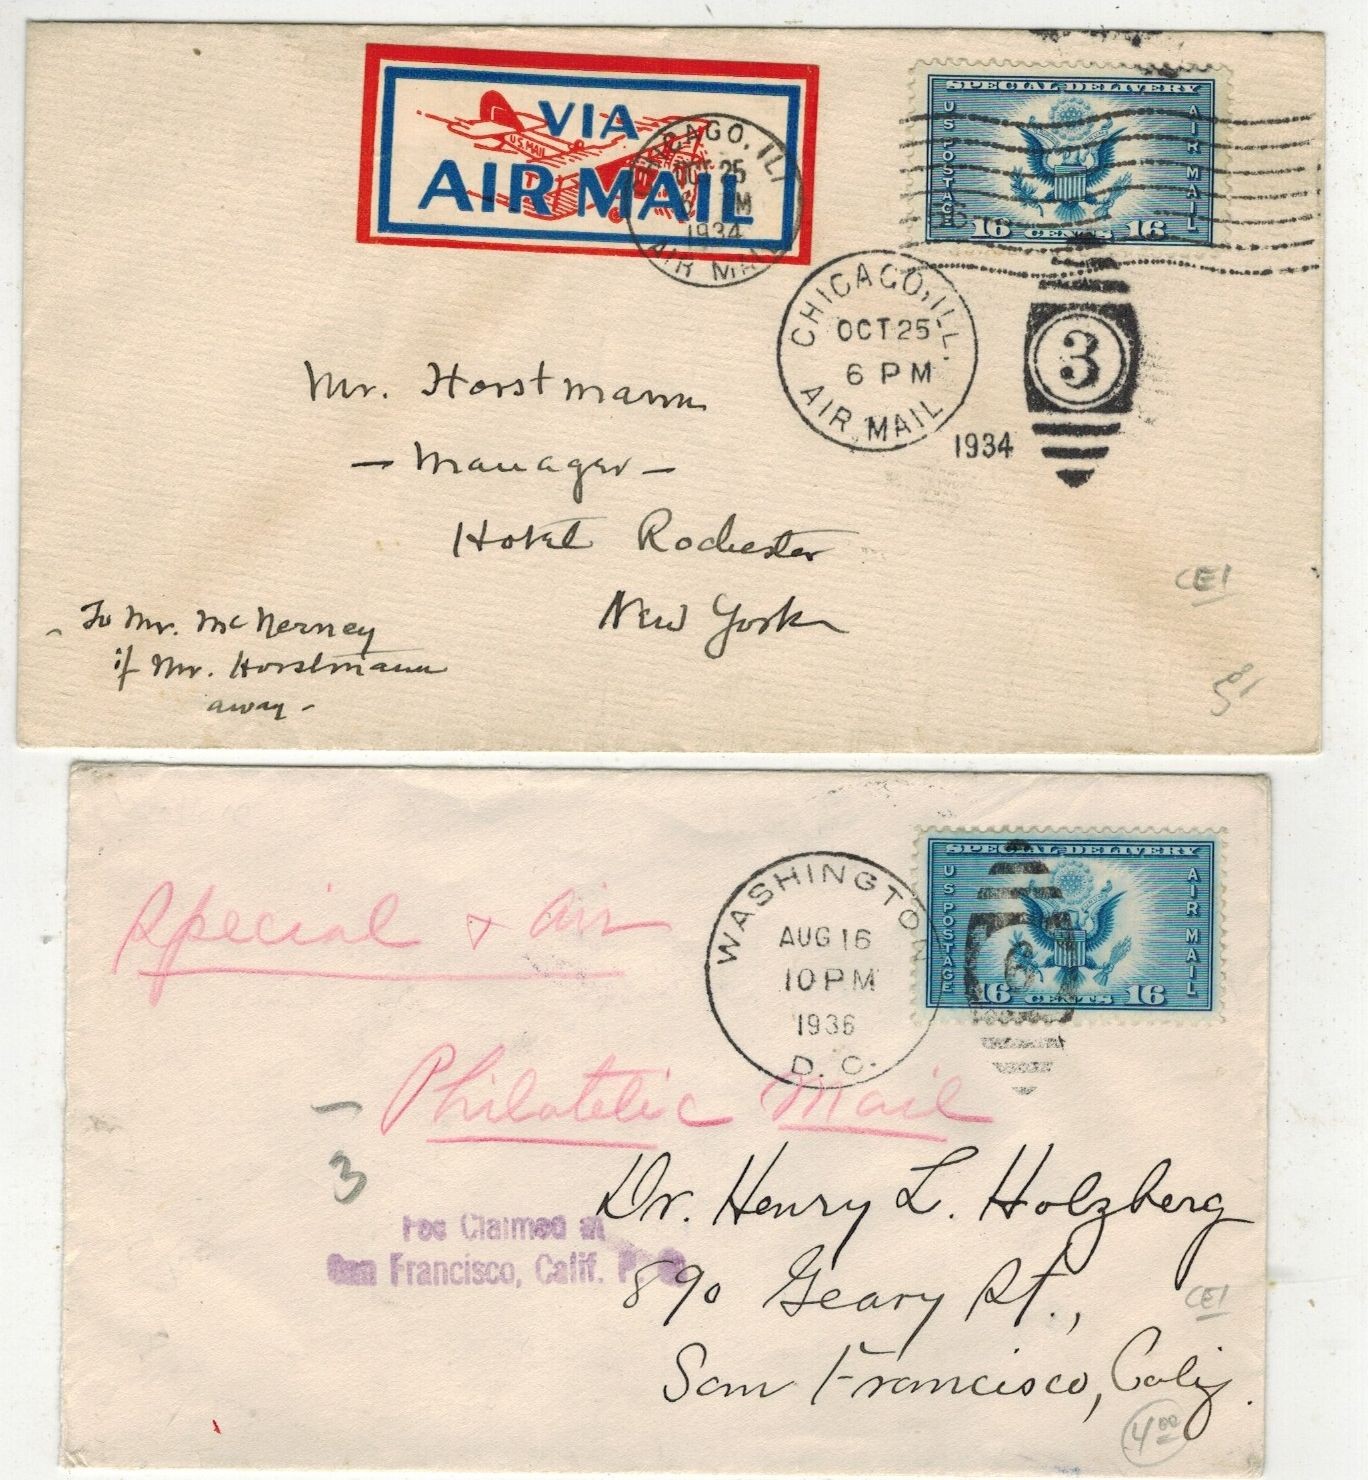 VIA
AIR MAIL
U.S. MAIL
CHICAGO, ILL
OCT 25
PM
1934
AIR MAIL
SPECIAL DELIVERY
US POSTAGE
AIR MAIL
16 CENTS 16
CHICAGO, ILL.
OCT 25
6 PM
AIR MAIL
1934
3
Mr. Horstmann
- Manager -
Hotel Rochester
New York
- To Mr. McNerney
if Mr. Horstmann
away -
CE1
SPECIAL DELIVERY
US POSTAGE
AIR MAIL
16 CENTS 16
WASHINGTON
AUG 16
10 PM
1936
D. C.
6
Special & air
Philatelic Mail
3
Fee Claimed at
San Francisco, Calif. P. O.
Dr. Henry L. Holzberg
890 Geary St.,
San Francisco, Calif.
CE1
4.00